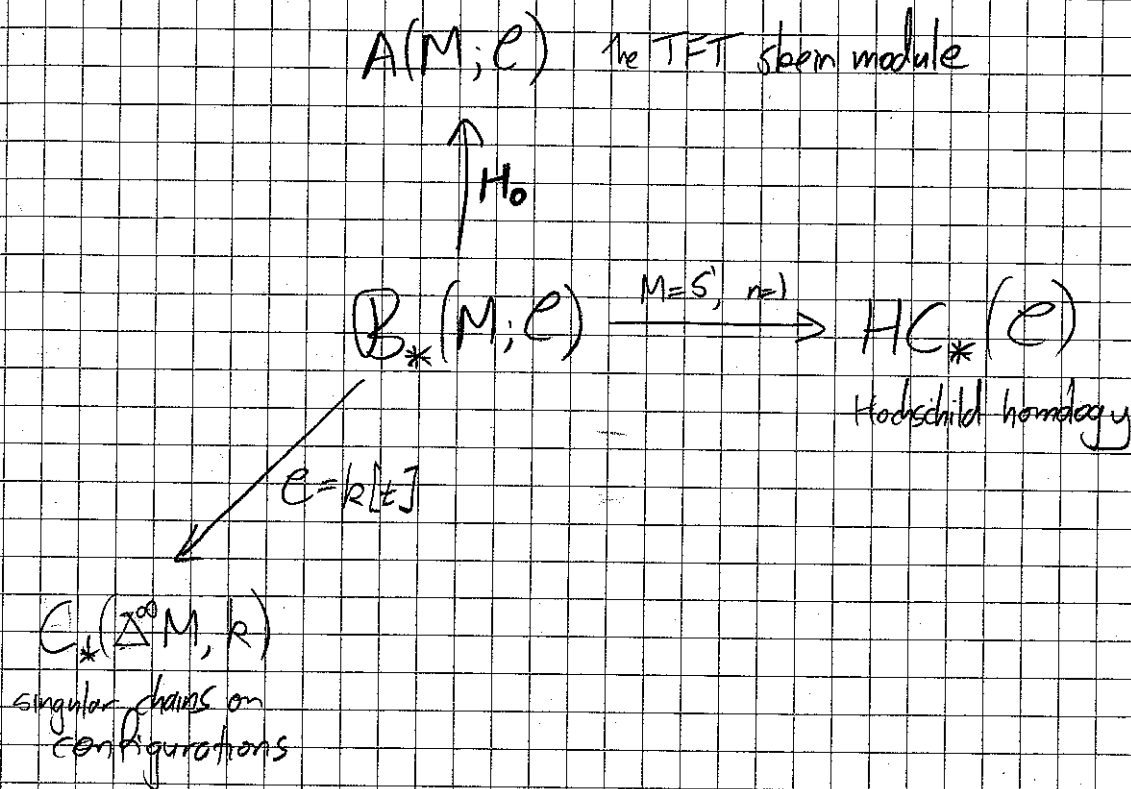 A(M; C) the TFT skein module
H₀
B_*(M; C) M=S¹, n=1 HC_*(C)
Hochschild homology
C=k[t]
C_*(Δ^∞M, k)
singular chains on
configurations